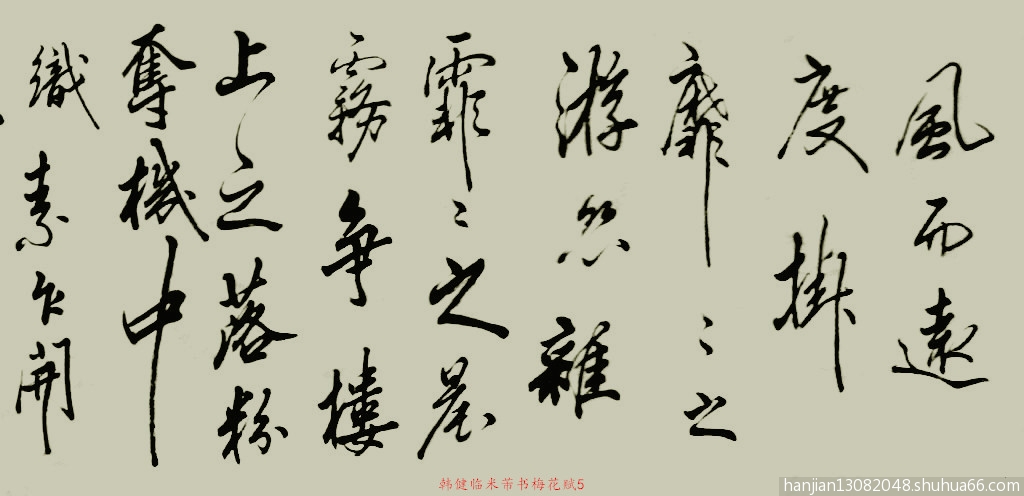 風而遠
度掛
靡〻之
游絲雜
霏〻之晨
霧爭樓
上之落粉
奪機中
織素乍開
韩健临米芾书梅花赋5
hanjian13082048.shuhua66.com